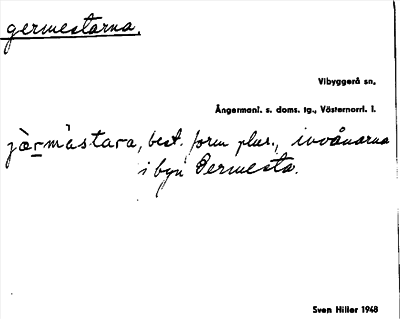 germestarna.
Vibyggerå sn.
Ångermanl. s. doms. tg., Västernorrl. l.
jàrmästara, best. form plur., invånarna
i byn Germesta.
Sven Hiller 1948